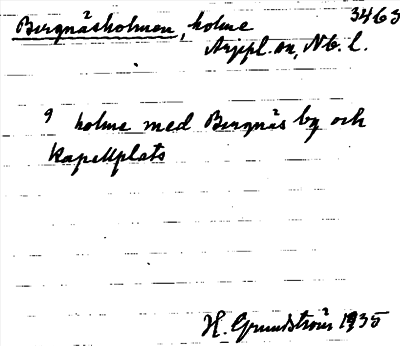 Bergnäsholmen, holme 3463
Arjepl. sn, Nb. l.
9 holme med Bergnäs by och
kapellplats
H. Grundström 1935